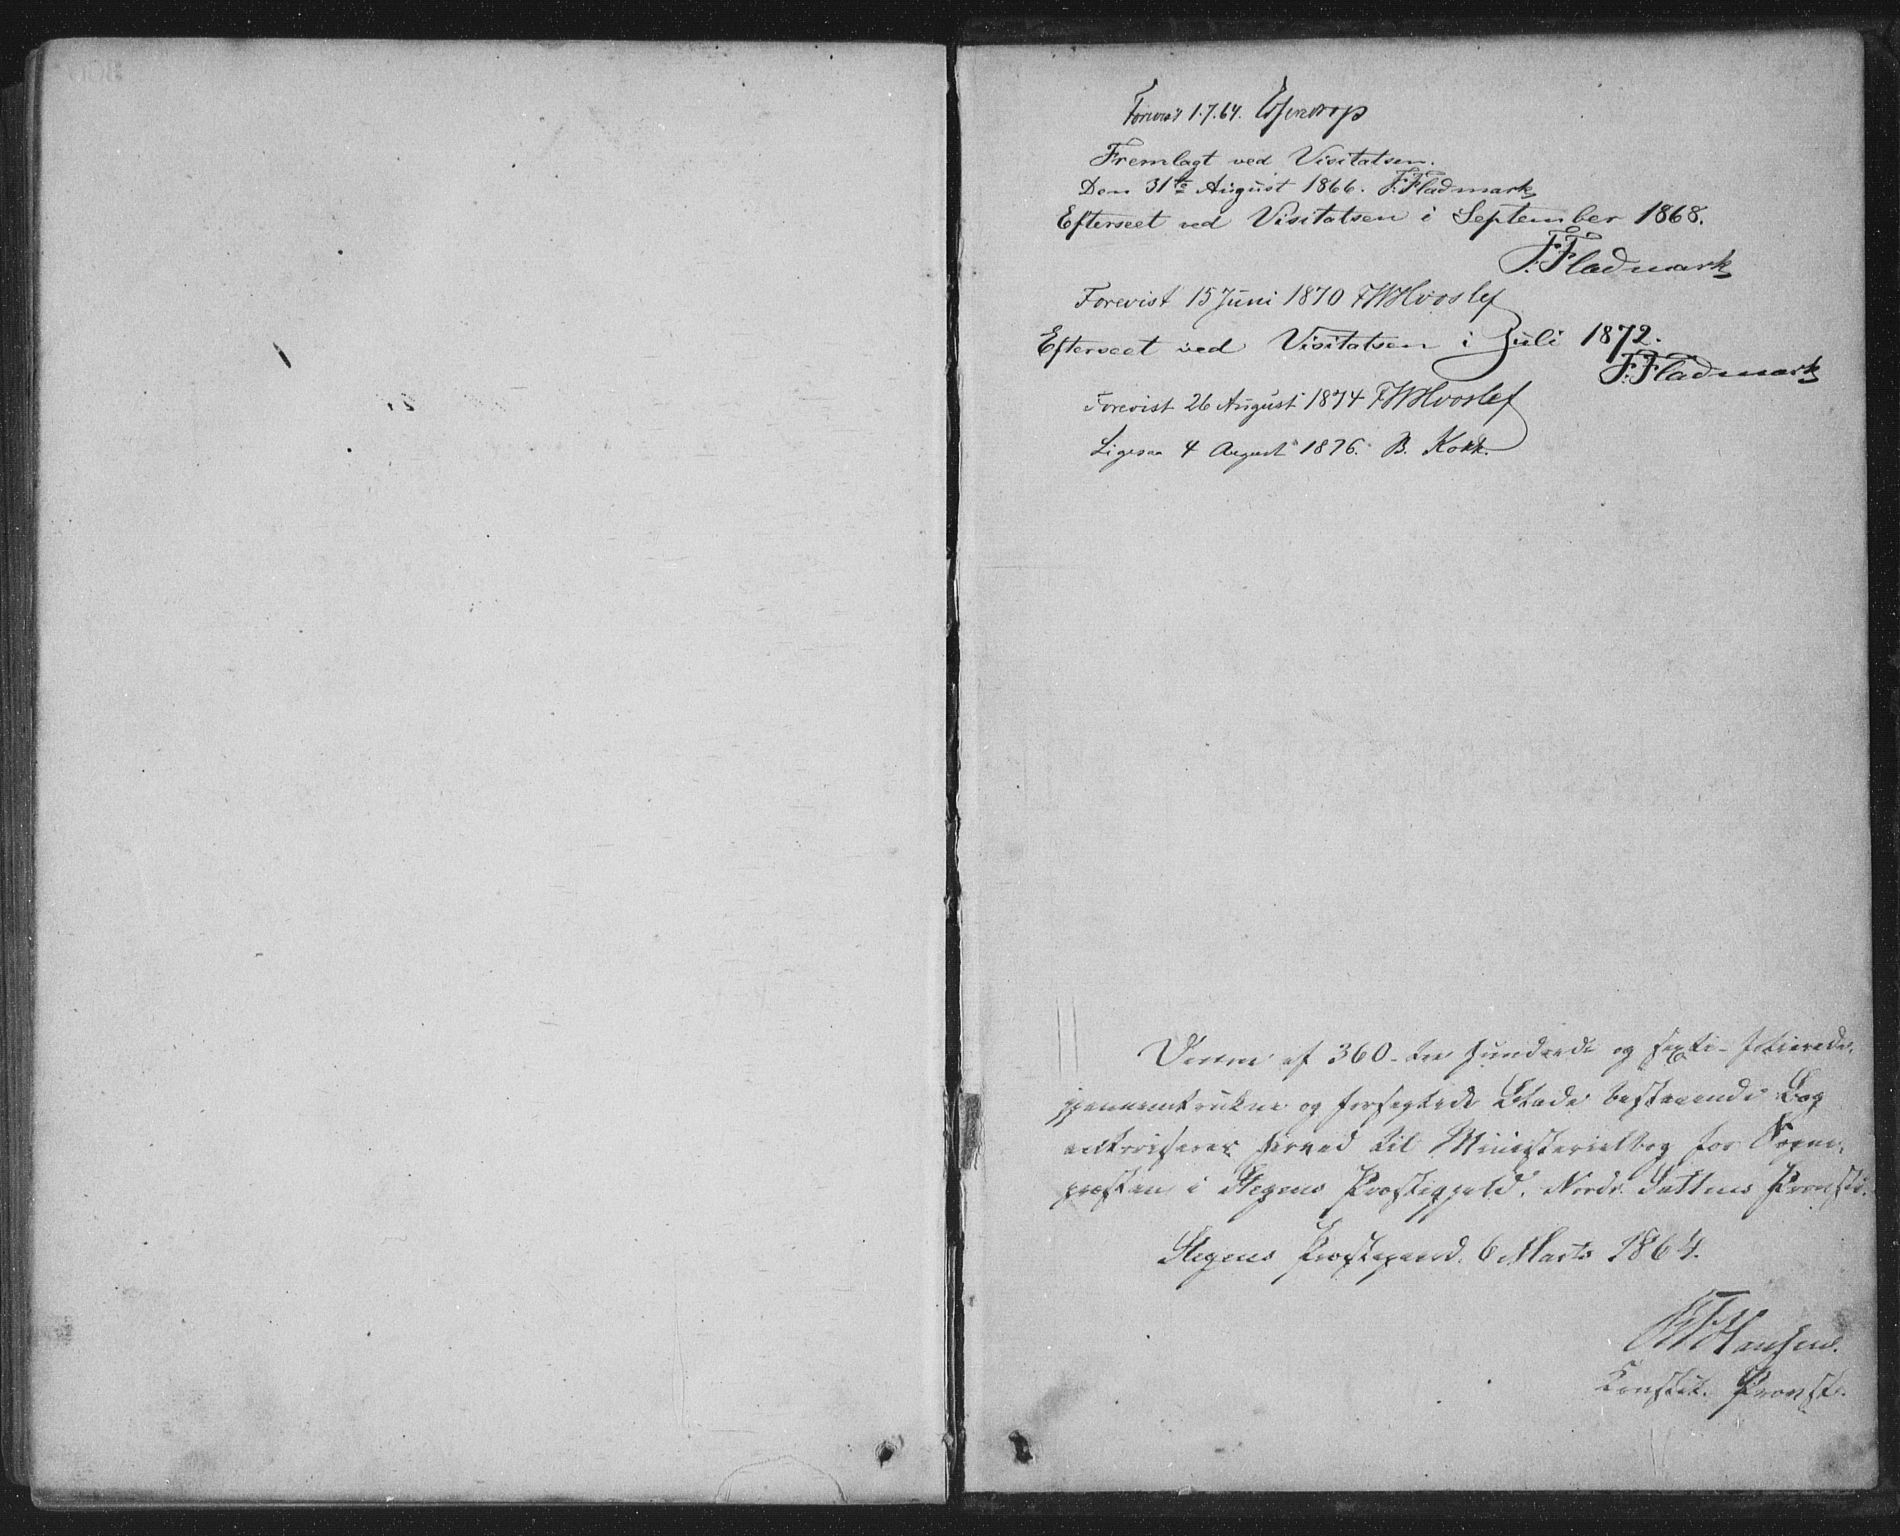 Forevist 1.7.64. Essendrop
Fremlagt ved Visitatsen.
Den 31te August 1866. F. Fladmark
Efterseet ved Visitatsen i September 1868.
F. Fladmark
Forevist 15 Juni 1870 FWHvoslef
Efterseet ved Visitatsen i Juli 1872.
F. Fladmark
Forevist 26 August 1874 FWHvoslef
Ligesaa 4 August 1876. B. Kokk.
Denne af 360 - tre hundrede og sexti - folierede,
gjennemtrukne og forseglede Blade bestaaende Bog
autoriseres herved til Ministerialbog for Sogne-
præsten i Stegens Præstegjeld, Nordr. Saltens Provsti.
Stegens Præstegaard, 6 Marts 1864.
Hansen.
Constit. Provst.